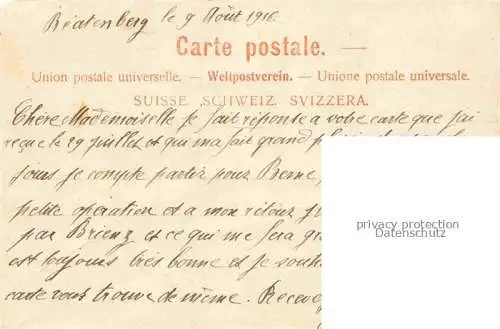 Beatenberg le 9 Août 1916.
Carte postale. —
Union postale universelle. — Weltpostverein. — Unione postale universale.
SUISSE. SCHWEIZ. SVIZZERA.
Chère Mademoiselle je fait réponse a votre carte que j'ai
reçue le 29 juillet et qui ma fait grand
jours je compte partir pour Berne,
petite opération et a mon retour
par Brienz et ce qui me fera
est toujours très bonne et je
carte vous trouve de même. Recevez
privacy protection
Datenschutz